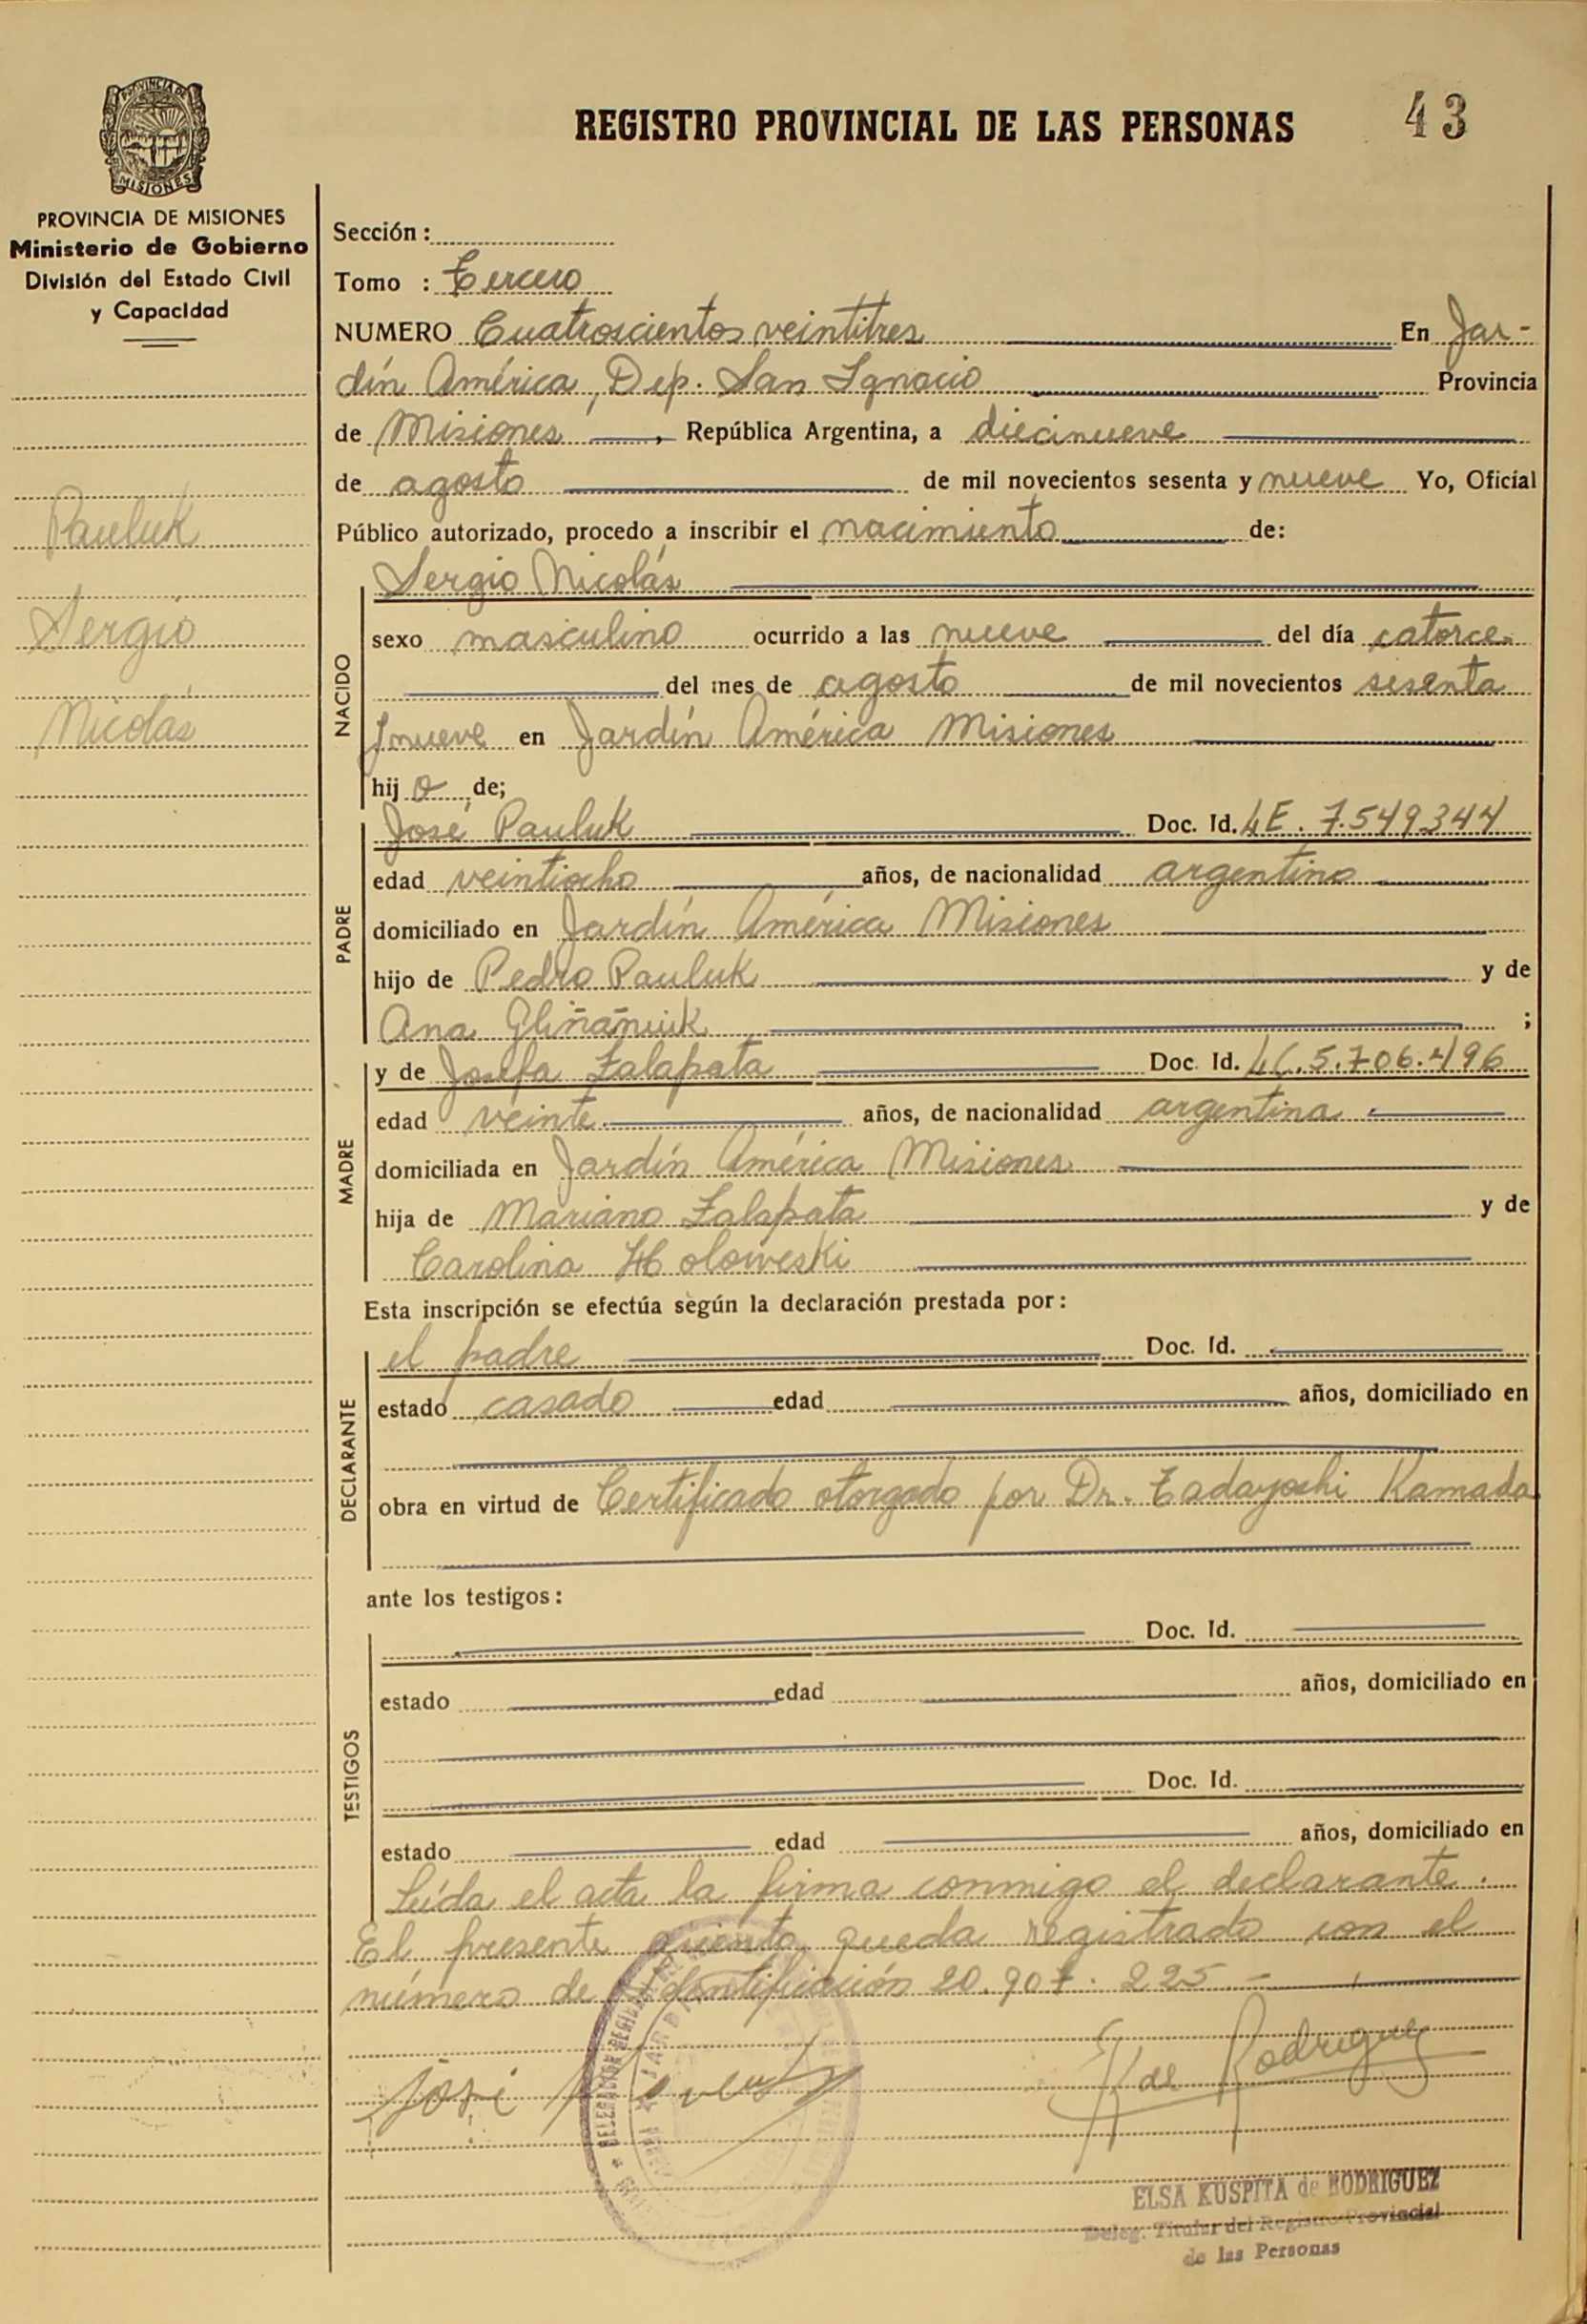 PROVINCIA DE
MISIONES
PROVINCIA DE MISIONES
Ministerio de Gobierno
División del Estado Civil
y Capacidad
Pauluk
Sergio
Nicolás
REGISTRO PROVINCIAL DE LAS PERSONAS 43
Sección:
Tomo : Tercero
NUMERO Cuatroscientos veintitres En Jar-
dín América, Dep. San Ignacio Provincia
de Misiones, República Argentina, a diecinueve
de agosto de mil novecientos sesenta y nueve Yo, Oficial
Público autorizado, procedo a inscribir el nacimiento de:
Sergio Nicolás
NACIDO
sexo masculino ocurrido a las nueve del día catorce
del mes de agosto de mil novecientos sesenta
y nueve en Jardín América Misiones
hij o de;
PADRE
José Pauluk Doc. Id. LE. 7.549344
edad veintiocho años, de nacionalidad argentino
domiciliado en Jardín América Misiones
hijo de Pedro Pauluk y de
Ana ;
MADRE
y de Josefa Zalapata Doc. Id. LC. 5.706.496
edad veinte años, de nacionalidad argentina
domiciliada en Jardín América Misiones
hija de Mariano Zalapata y de
Carolina Holoweski
Esta inscripción se efectúa según la declaración prestada por:
DECLARANTE
el padre Doc. Id.
estado casado edad años, domiciliado en
obra en virtud de Certificado otorgado por Dr. Tadayoshi Kamada
ante los testigos:
TESTIGOS
Doc. Id.
estado edad años, domiciliado en
Doc. Id.
estado edad años, domiciliado en
Leída el acta la firma conmigo el declarante.
El presente asiento queda registrado con el
número de Identificación 20.907.225 -
José
E K de Rodriguez
ELSA KUSPITA de RODRIGUEZ
Deleg. Titular del Registro Provincial
de las Personas